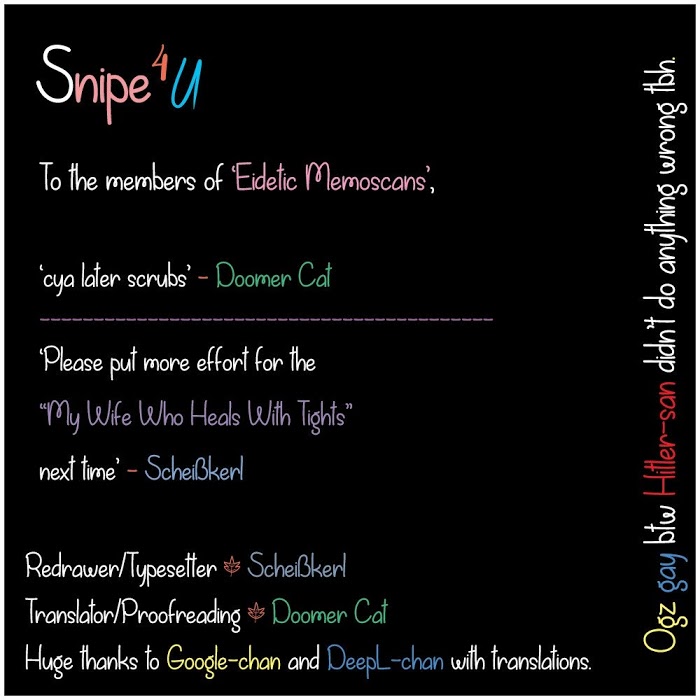 Snipe4U
To the members of 'Eidetic Memoscans',
'cya later scrubs' - Doomer Cat
------------------------------------------
'Please put more effort for the
"My Wife Who Heals With Tights"
next time' - Scheißkerl
Redrawer/Typesetter Scheißkerl
Translator/Proofreading Doomer Cat
Huge thanks to Google-chan and DeepL-chan with translations.
Ogz gay btw Hitler-san didn't do anything wrong tbh.